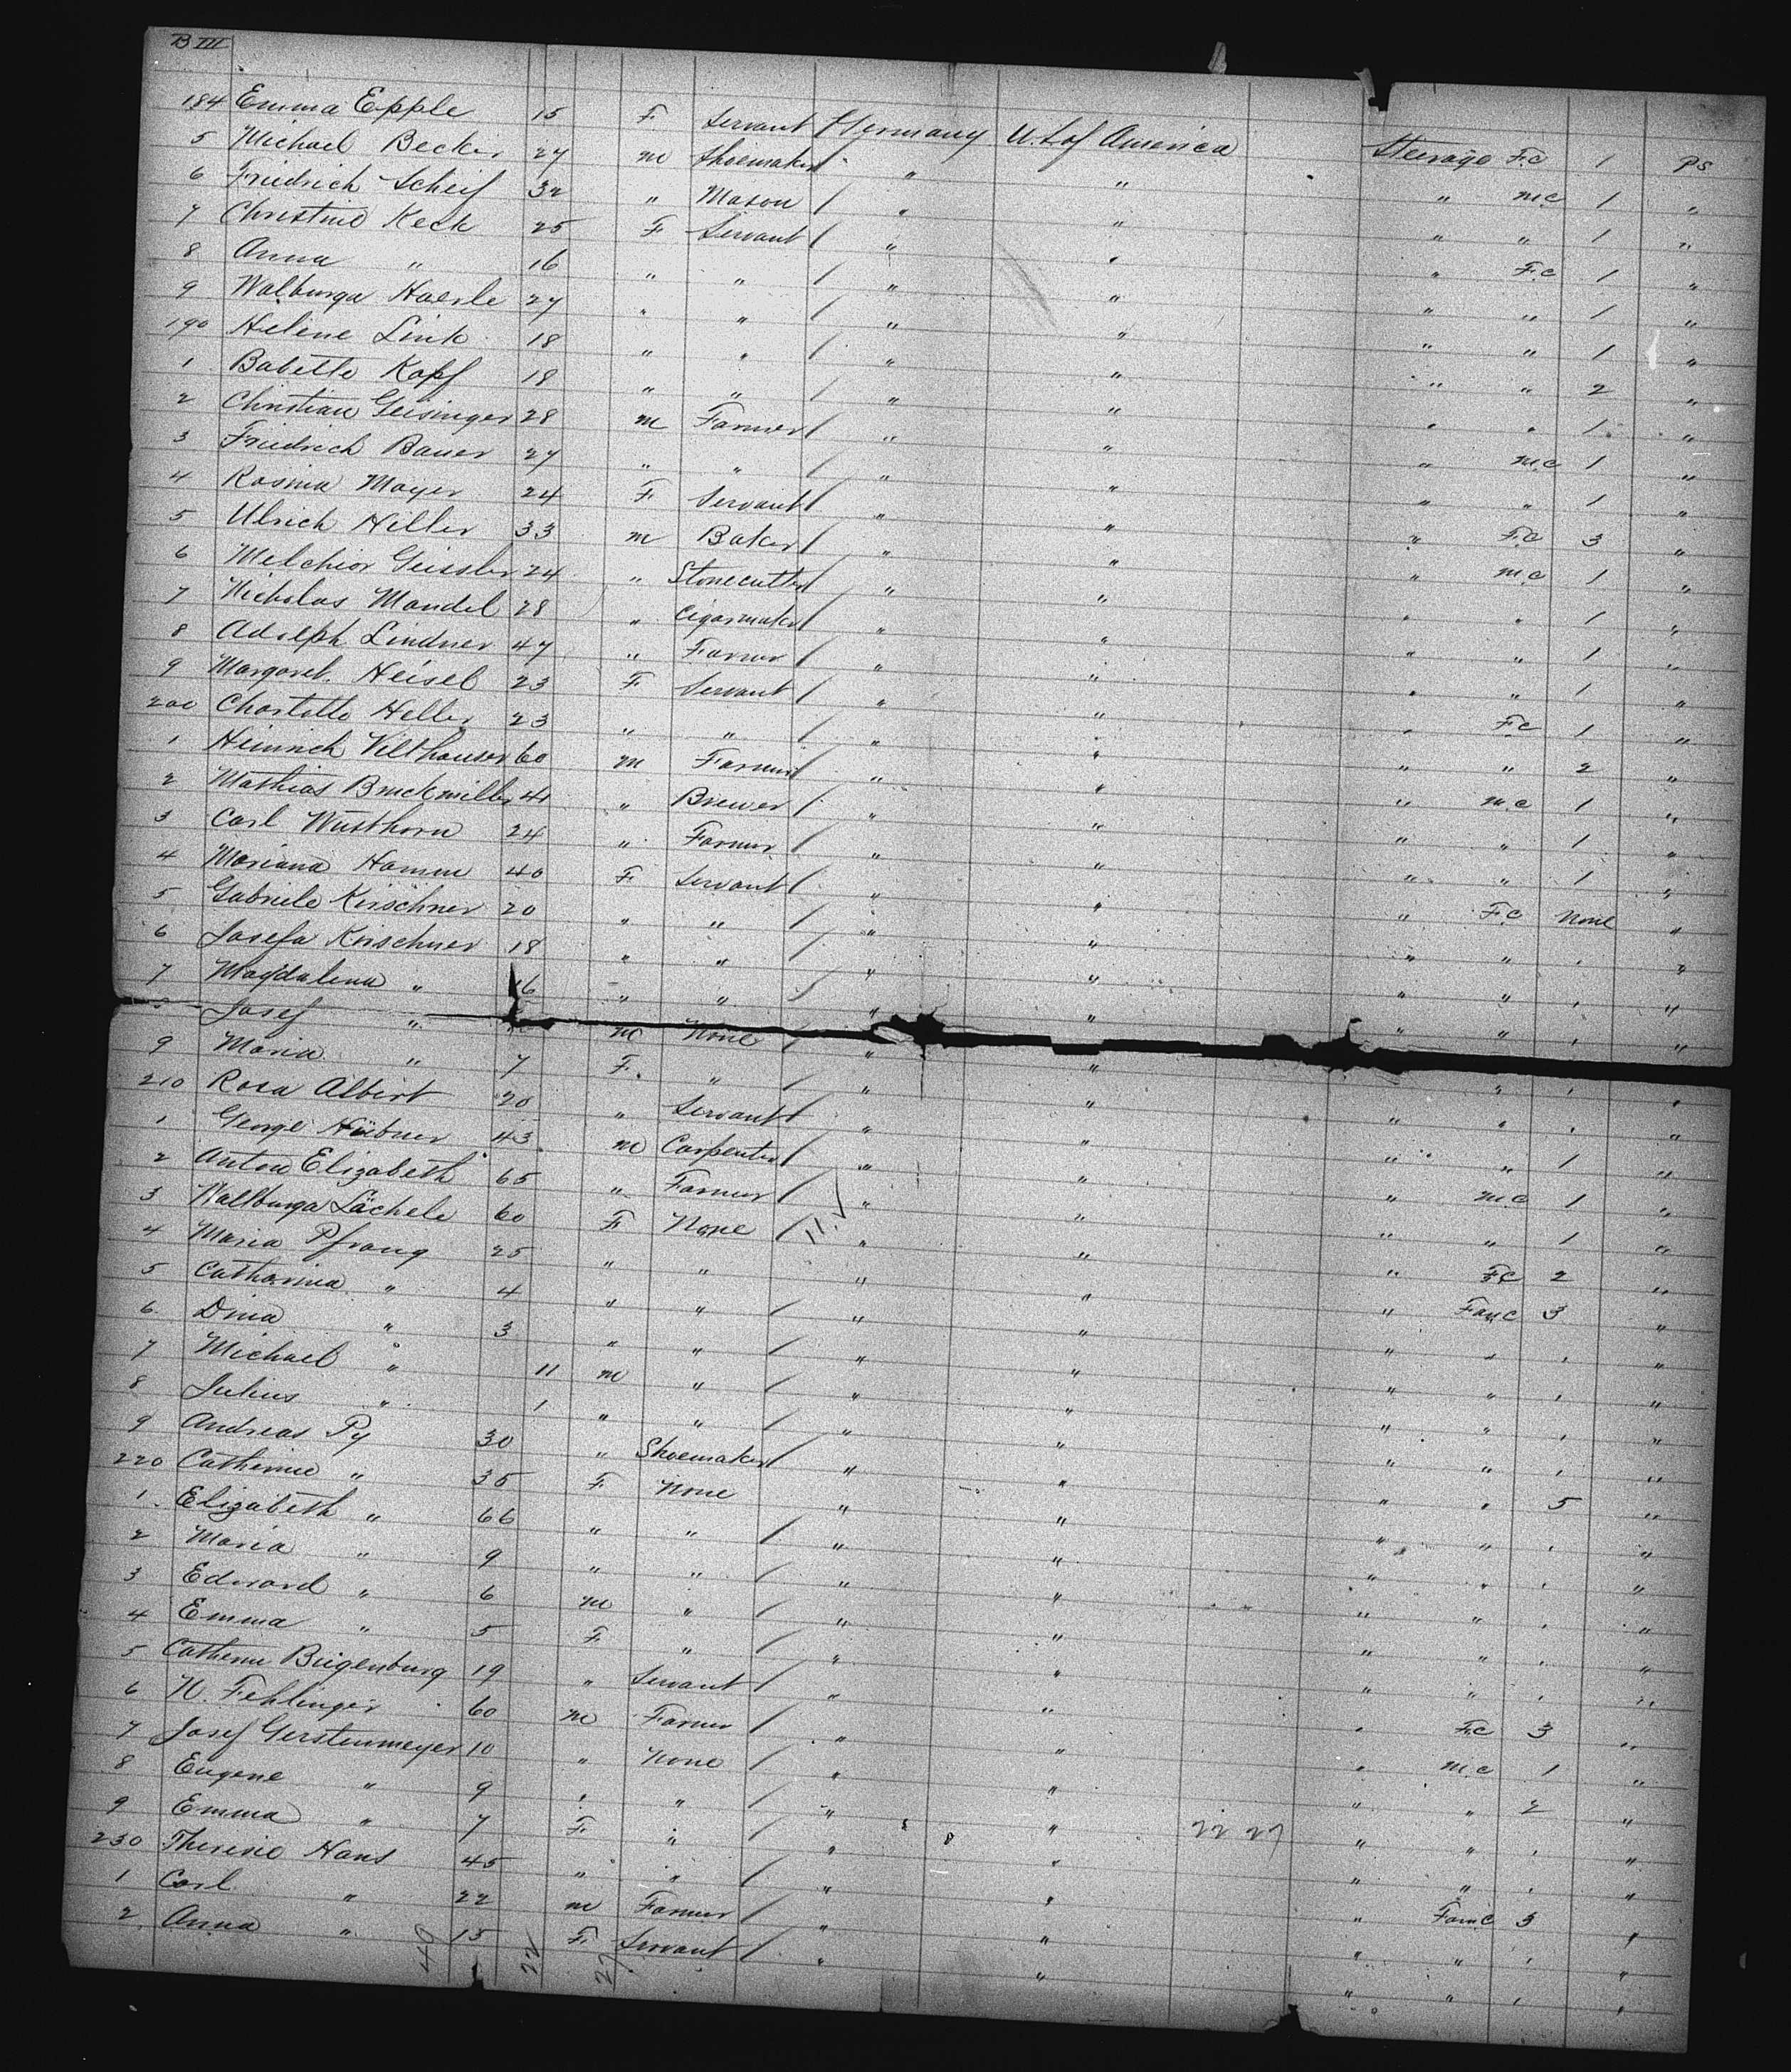 B III
184 Emma Epple 15 F. Servant / Germany U.S. of America Steerage F.C 1 PS
5 Michael Becker 27 m Shoemaker " " " m.c 1 "
6 Friedrich Scheif 32 " Mason / " " " " 1 "
7 Christine Keck 25 F. Servant / " " " F.C 1 "
8 Anna " 16 " " / " " " " 1 "
9 Walburga Haerle 27 " " / " " " " 1 "
190 Helene Link 18 " " / " " " " 2 "
1 Babette Kopf 18 " " / " " " " 1 "
2 Christian Geisinger 28 m Farmer / " " " m.c 1 "
3 Friedrich Bauer 27 " " / " " " " 1 "
4 Rosina Mayer 24 F. Servant / " " " F.C 3 "
5 Ulrich Hiller 33 m Baker / " " " m.c 1 "
6 Melchior Geissler 24 " Stonecutter / " " " " 1 "
7 Nicholas Mandel 28 " Cigarmaker / " " " " 1 "
8 Adolph Lindner 47 " Farmer / " " " " 1 "
9 Margaret Heisel 23 F Servant / " " " F.C 1 "
200 Charlotte Heller 23 " " / " " " " 2 "
1 Heinrich Velthauser 60 m Farmer / " " " m.c 1 "
2 Mathias Bruckmiller 41 " Brewer / " " " " 1 "
3 Carl Wusthorn 24 " Farmer / " " " " 1 "
4 Mariana Hamm 40 F. Servant / " " " F.C None "
5 Gabriele Kirschner 20 " " / " " " " " "
6 Josefa Kirschner 18 " " / " " " " " "
7 Magdalena " 16 " " / " " " " " "
Josef " m None / " "
9 Maria " 7 F. " / " " " " "
210 Rosa Albert 20 " Servant / " " " " 1 "
1 George Hübner 43 m Carpenter / " " " m.c 1 "
2 Anton Elizabeth 65 " Farmer / " " " " 1 "
3 Wallburga Lächele 60 F None / 11. " " " F.C 2 "
4 Maria Pfrang 25 " " " " " Fam.C 3 "
5 Catharina " 4 " " / " " " " " "
6 Dina " 3 " " / " " " " " "
7 Michael " 11 m " / " " " " " "
8 Julius " 1 " " / " " " " " "
9 Andreas Py 30 " Shoemaker / " " " " 5 "
220 Catherine " 35 F. None " " " " " "
1 Elizabeth " 66 " " / " " " " " "
2 Maria " 9 " " / " " " " " "
3 Edward " 6 m " / " " " " " "
4 Emma " 5 F. " / " " " " " "
5 Catherine Biegenburg 19 " Servant / " " " F.C 3 "
6 N. Fehlinger 60 m Farmer / " " " m.c 1 "
7 Josef Gerstenmeyer 10 " None / " " " " 2 "
8 Eugene " 9 " " / " " " " " "
9 Emma " 7 F. " / " 8 " 22 27 " " " "
230 Therese Hans 45 " " / " " " Fam.C 3 "
1 Carl " 22 m Farmer / " " " " " "
2 Anna " 15 F. Servant / " " " " " "
49 1 22 27